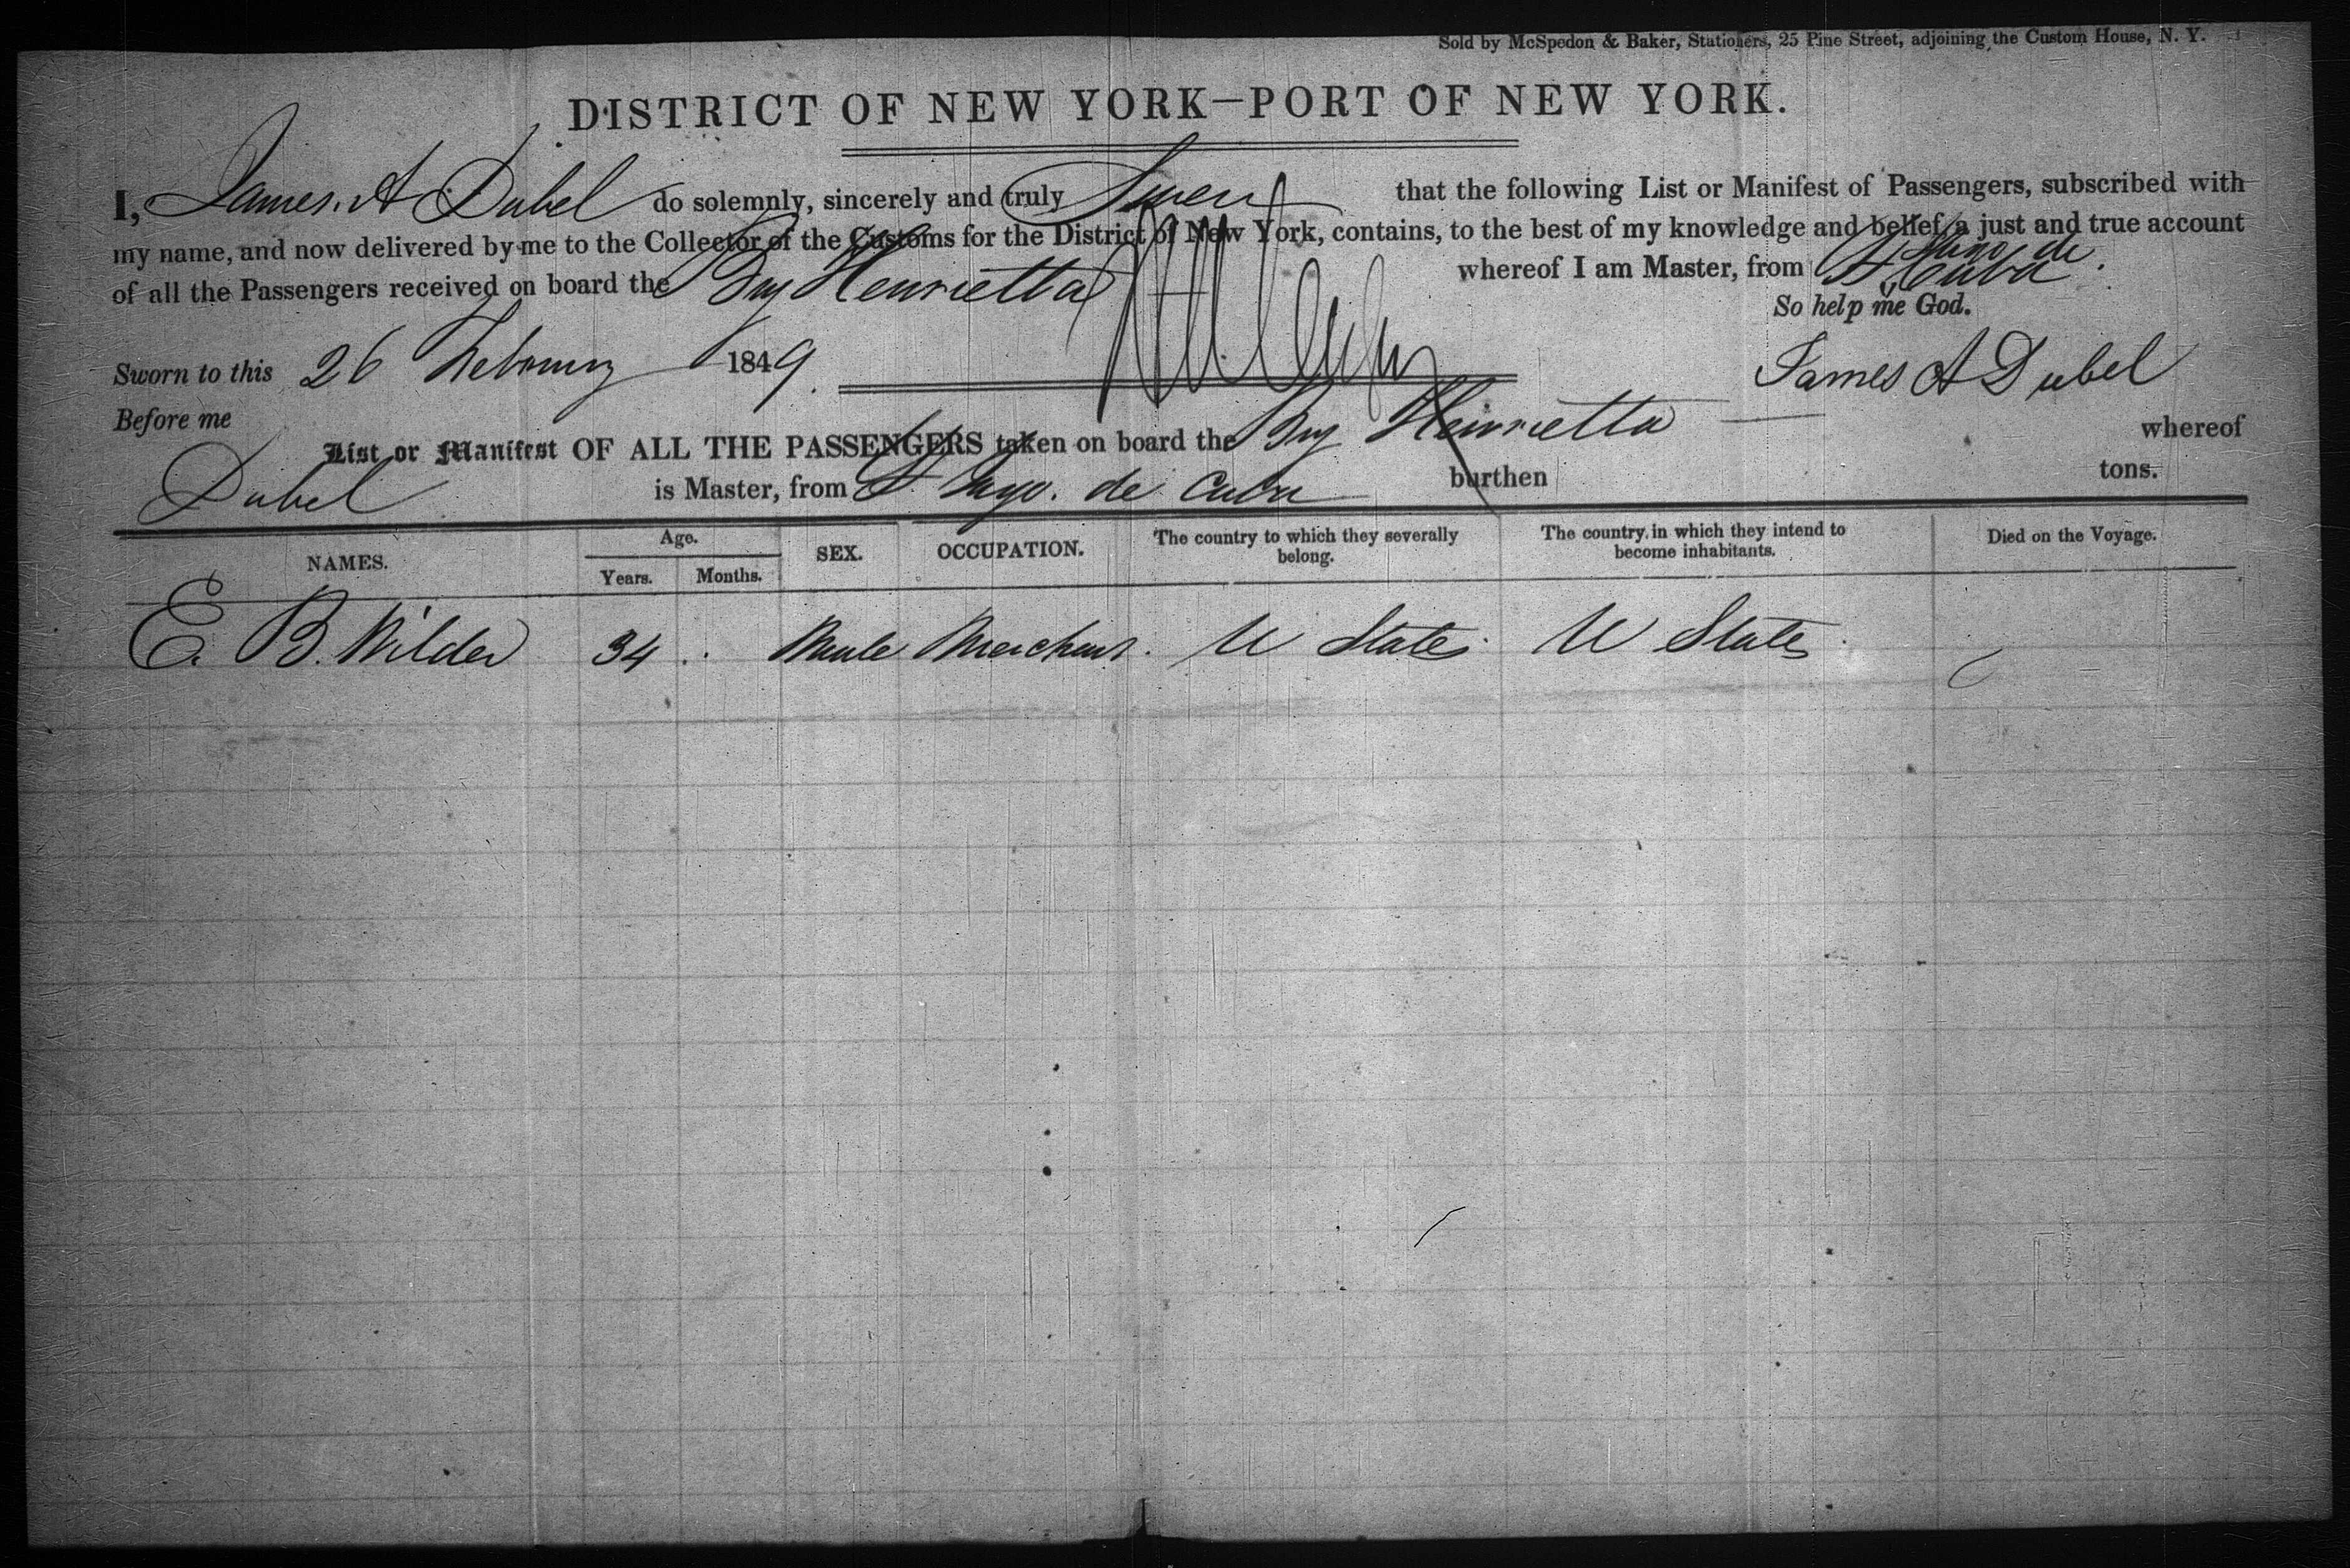 Sold by McSpedon & Baker, Stationers, 25 Pine Street, adjoining the Custom House, N. Y.
DISTRICT OF NEW YORK—PORT OF NEW YORK.
I, James A Dubel do solemnly, sincerely and truly Swear that the following List or Manifest of Passengers, subscribed with
my name, and now delivered by me to the Collector of the Customs for the District of New York, contains, to the best of my knowledge and belief, a just and true account
of all the Passengers received on board the Brig Henrietta whereof I am Master, from St de Cuba
So help me God.
Sworn to this 26 February 1849. James A Dubel
Before me
List or Manifest OF ALL THE PASSENGERS taken on board the Brig Henrietta whereof
Dubel is Master, from St Jago. de Cuba burthen tons.
NAMES. Age. Years. Months. SEX. OCCUPATION. The country to which they severally belong. The country in which they intend to become inhabitants. Died on the Voyage.
E. B. Wilder 34 Male Merchant. U States U States